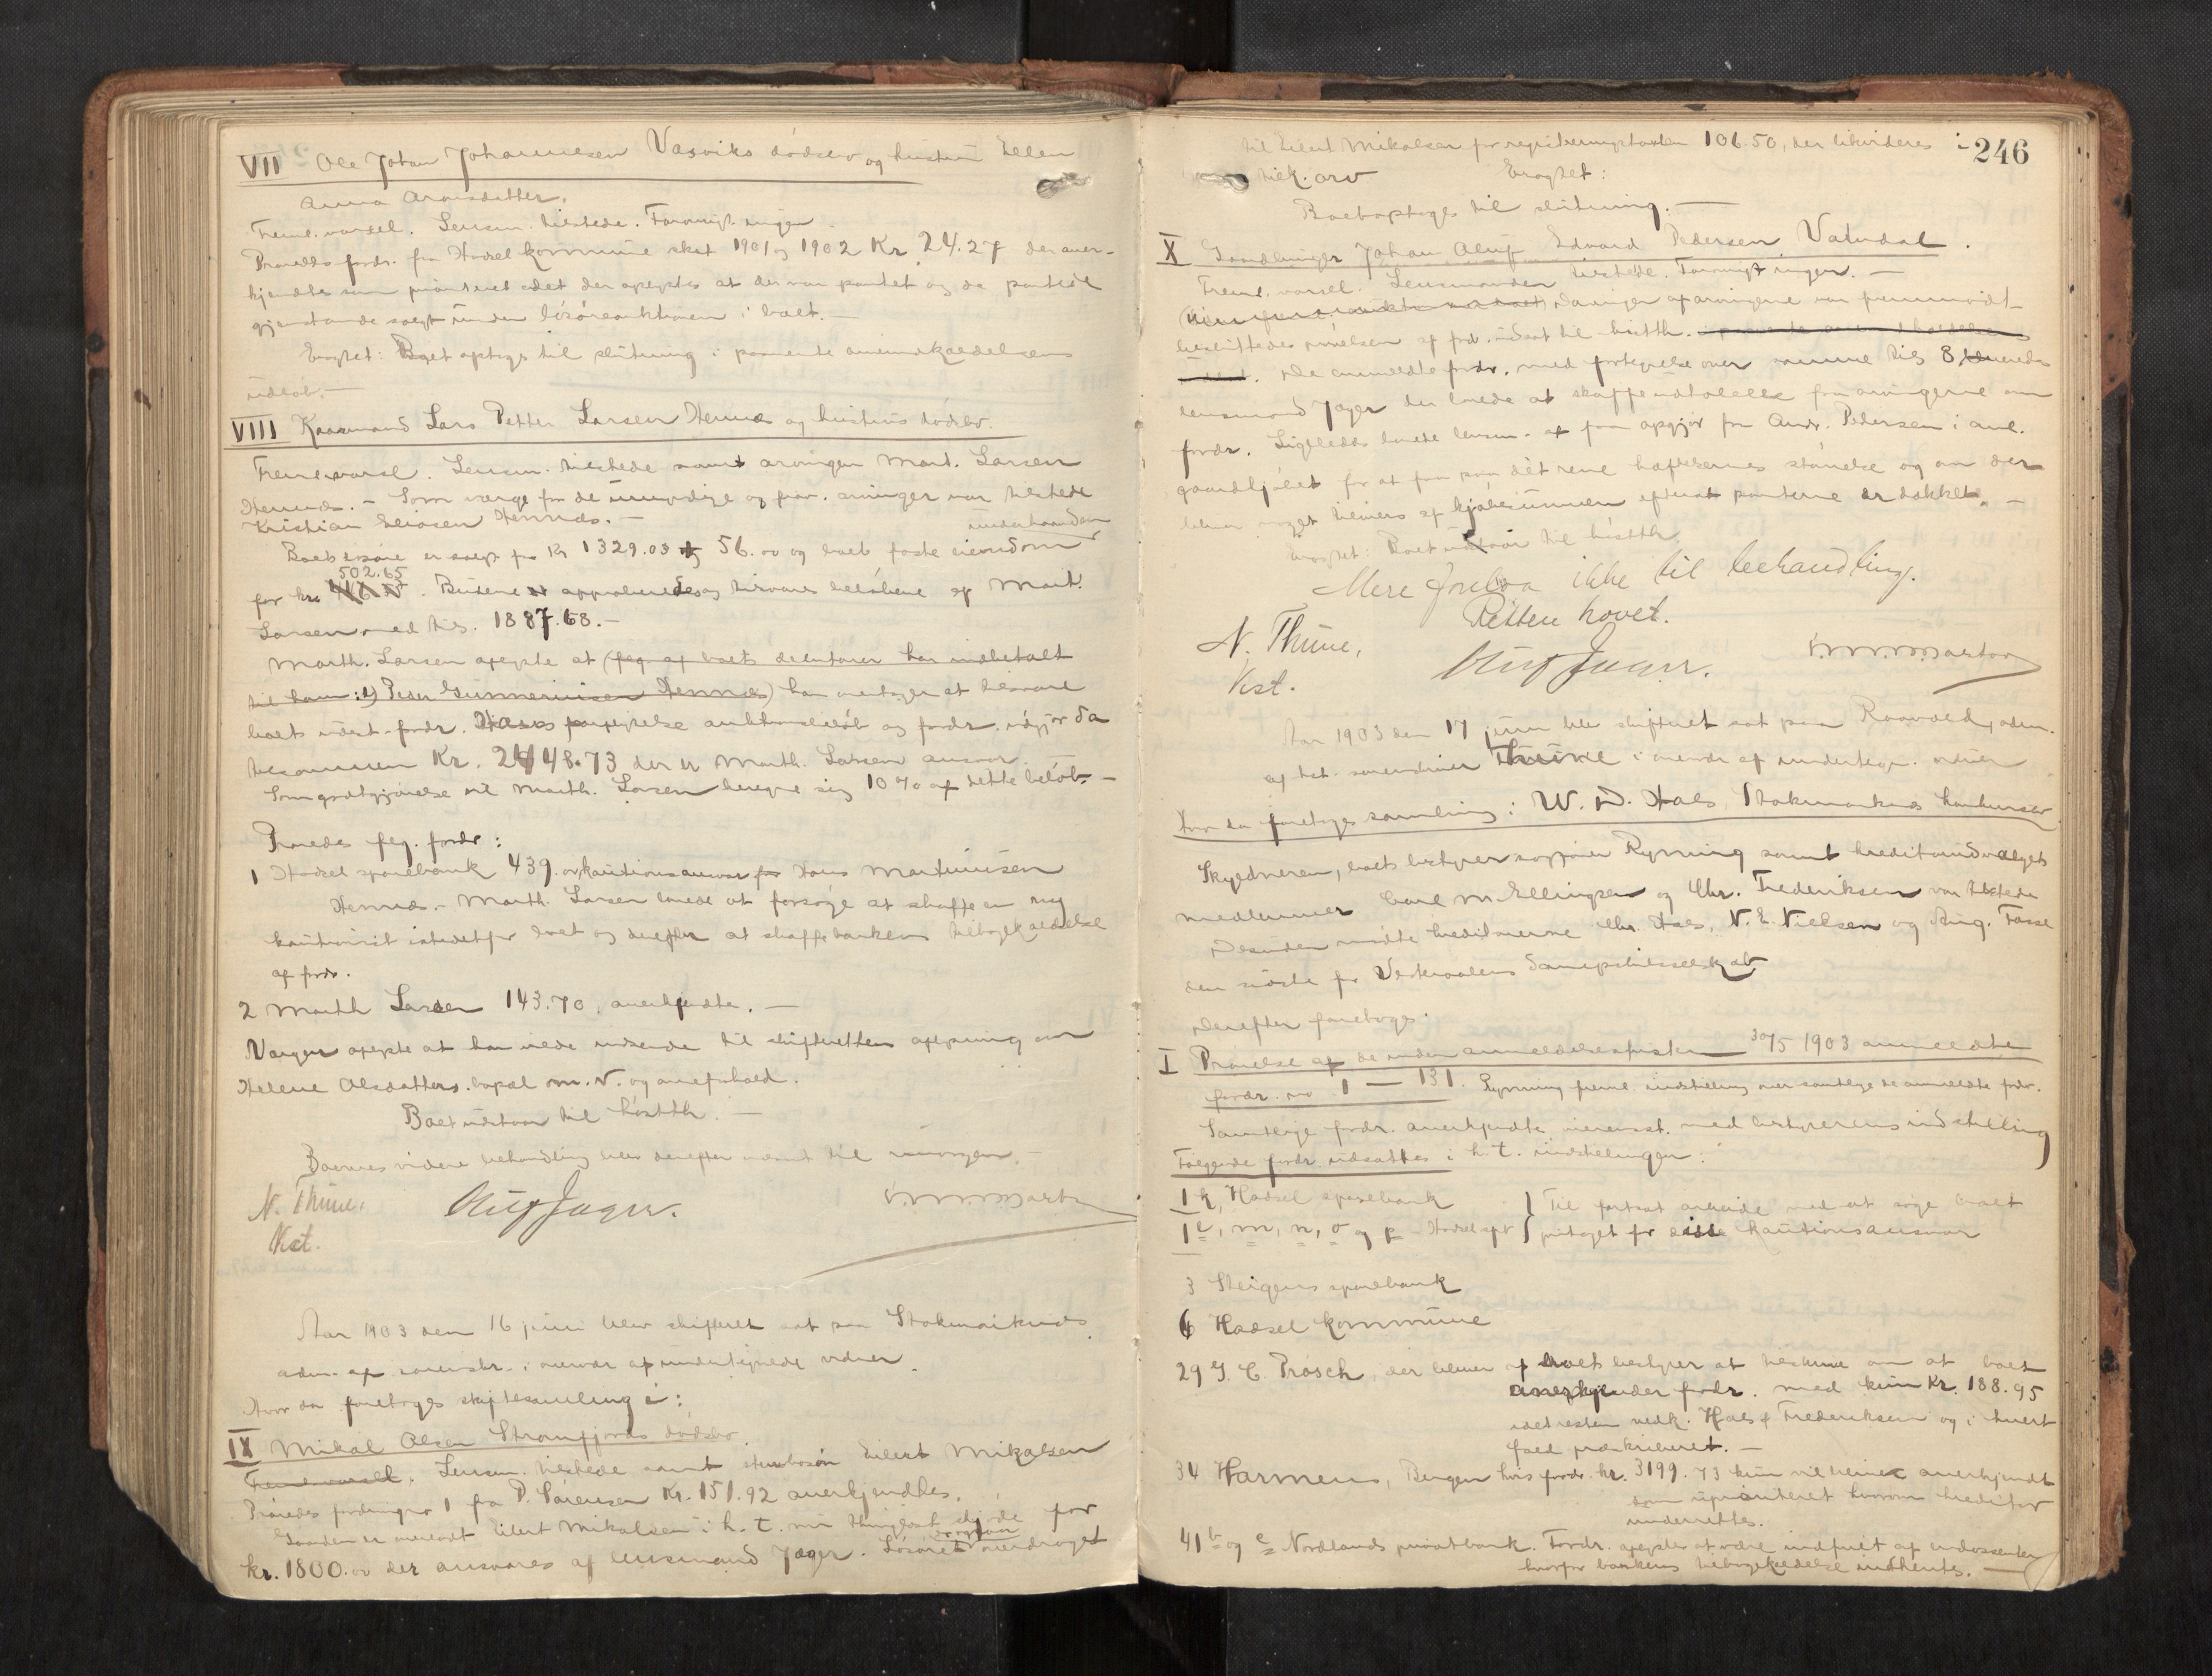 VII Ole Johan Johannesen Vasviks dødsbo og hustru Ellen
Anna Aronsdatter.
Freml. varsel. Lensm. tilstede. Forøvrigt ingen
Prøvedes fordr. fra Hadsel kommune skat 1901 og 1902 Kr. 24.27 der aner-
kjendtes som prioriteret idet der oplystes at der var pantet og de pantede
gjenstande solgt under løsøreauktionen i boet. —
Eragtet: Boet optages til slutning i paavente av indkaldelsens
udløb. —
VIII Kaarmand Lars Petter Larsen Hennes og hustrus dødsbo.
Freml. varsel. Lensm. tilstede samt arvingen Mart. Larsen
Hennes. — Som værge for de umyndige og frav. arvinger var tilstede
Kristian Eliasen Hennes. —
underhaanden
Boets løsøre er solgt for Kr 1329.03 og 56.00 og boets faste eiendom
502.65
for kr. . Budene approberedes og tilsvares beløbene af Mart.
Larsen med tils. 1887.68. —
Marth. Larsen oplyste at (flg. af boets debitorer har indbetalt
til ham: 1) Peder Gunneriusen Hennes) han overtager at tilsvare
boets udest. fordr. auktionsbeløb og fordr. udgjør da
tilsammen Kr. 2448.73 der er Marth. Larsens ansvar.
Som godtgjørelse vil Marth. Larsen beregne sig 10% af dette beløb. —
Prøvedes flg. fordr:
1 Hadsel sparebank 439.00 kautionsansvar for Hans Martinusen
Hennes. — Marth. Larsen lovede at forsøge at skaffe en ny
kautionist istedetfor boet og derefter at skaffe bankens tilbagekaldelse
af fordr.
2 Marth Larsen 143.70, anerkjendtes. —
Værgen oplyste at han vilde indsende til skifteretten oplysning om
Helene Olsdatters bopæl m. v. og arveforhold.
Boet udstaar til høstth. —
Boernes videre behandling blev derefter udsat til imorgen. —
N. Thiine,
Kst.
Aug Jæger.
Aar 1903 den 16 juni blev skifteret sat paa Stokmarknes
adm. af sorenskr. i overvær af undertegnede vidner.
Hvor da foretoges skiftesamling i:
IX Mikal Olsen Strømfjords dødsbo
Freml. varsel. Lensm. tilstede samt stervbosøn Eilert Mikalsen
Prøvedes fordringer 1 fra P. Sørensen Kr. 151.92 anerkjendtes.
Gaarden er overladt Eilert Mikalsen i h. t. nu thinglæst skjøde for
kr. 1800.00 der ansvares af lensmand Jæger. Løsøret overdraget
246
til Eilert Mikalsen for registreringstaksten 106.50, der likvideres i
tilk. arv
Eragtet:
Boet optages til slutning. —
X Gaardbruger Johan Aluf Edvard Pedersen Vatndal.
Freml. varsel. Lensmanden tilstede. Forøvrigt ingen. —
Da ingen af arvingerne var fremmødt
besluttedes prøvelsen af fordr. udsat til høstth.
De anmeldte fordr. med fortegnelse over samme tils 8, leveredes
lensmand Jæger der lovede at skaffe udtalelse fra arvingerne om
fordr. Ligeledes lovede lensm. at faa opgjør fra Andr. Pedersen i anl.
gaardkjøbet for at faa paa det rene hæftelsernes størrelse og om der
bliver noget tilovers af kjøbesummen efterat panterne er dækket. —
Eragtet: Boet udstaar til høstth.
Mere forelaa ikke til behandling.
Retten hævet.
N. Thiine,
Kst.
Aug Jæger.
Aar 1903 den 17 juni blev skifteret sat paa Raavold, adm.
af kst. sorenskriver Thiine i overvær af undertegn. vidner
Hvor da foretoges samling i: W. D. Hals, Stokmarknes konkursbo
Skyldneren, boets bestyrer sagfører Rynning samt kreditorudvalgets
medlemmer Carl M Ellingsen og Chr. Frederiksen var tilstede
Desuden mødte kreditorerne Chr. Hals, N. E. Nielsen og Aug. Fasse
den sidste for Vesteraalens Dampskibsselskab
Derefter foretoges:
I Prøvelse af de inden anmeldelsesfristen 30/5 1903 anmeldte
fordr. no 1 — 131. Rynning freml. indstilling over samtlige de anmeldte fordr.
Samtlige fordr. anerkjendtes overensst. med bestyrerens indstilling
Følgende fordr. udsattes i h. t. indstillingen:
1 k, Hadsel sparebank
1 l, m, n, o og p Hadsel spb } Til fortsat arbeide med at søge boet
fritaget for disse kautionsansvar
3 Steigens sparebank
6 Hadsel kommune
29 J. C. Prøsch, der bliver af boets bestyrer at tilskrive om at boet
anerkjender fordr. med kun Kr. 188.95
idet resten vedk. Hals & Frederiksen og i hvert
fald præskriberet. —
34 Harmens, Bergen hvis fordr. kr. 3199.73 kun vil blive anerkjendt
som uprioriteret hvorom kreditor
underrettes.
41 b og c Nordlands privatbank. Fordr. oplystes at være indfriet af endossenten
hvorfor bankens tilbagekaldelse indhentes. —